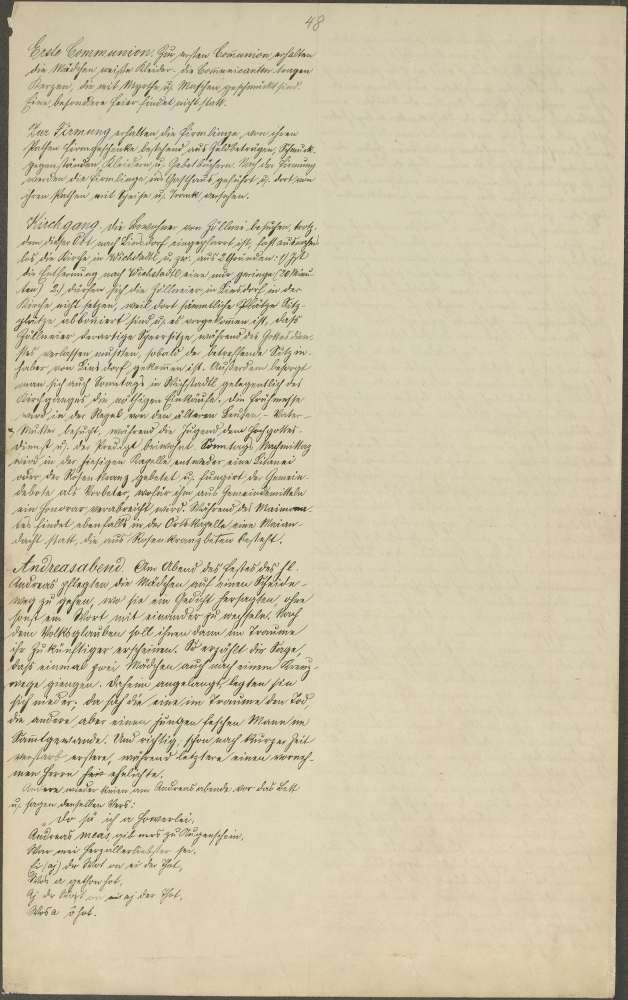 48
Erste Communion. Zur ersten Communion erhalten
die Mädchen weiße Kleider. Die Communicanten tragen
Kerzen, die mit Myrthe u. Maschen geschmückt sind.
Eine besondere Feier findet nicht statt.
Zur Firmung erhalten die Firmlinge von ihren
Pathen Firmgeschenke bestehend aus Geldbeträgen, Schmuck-
gegenständen, Kleidern u. Gebetbüchern. Nach der Firmung
werden die Firmlinge ins Gasthaus geführt u. dort von
ihren Pathen mit Speise u. Trank versehen.
Kirchgang. Die Bewohner von Zöllnei besuchen, trotz-
dem dieser Ort nach Linsdorf eingepfarrt ist, fast ausnahms-
los die Kirche in Wichstadtl u. zw. aus 2 Gründen: 1) Ist
die Entfernung nach Wichstadtl eine nur geringe (20 Minu-
ten) 2.) dürfen sich die Zöllneier in Linsdorf in der
Kirche nicht setzen, weil dort sämmtliche Plätze Sitz-
plätze abboniert sind u. es vorgekommen ist, dass
Zöllneier derartige Sperrsitze während des Gottesdien-
stes verlassen mussten, sobald der betreffende Sitzin-
haber von Linsdorf gekommen ist. Außerdem besorgt
man sich auch Sonntags in Wichstadtl gelegentlich des
Kirchganges die nöthigen Einkäufe. Die Frühmesse
wird in der Regel von den älteren Leuten – Vater –
Mutter besucht, während die Jugend dem Hochgottes-
dienst u. der Predigt beiwohnt. Sonntags Nachmittag
wird in der hiesigen Kapelle entweder eine Litanei
oder der Rosenkranz gebetet u. fungiert der Gemein-
debote als Vorbeter, wofür ihm aus Gemeindemitteln
ein Honorar verabreicht wird. Während des Maimona-
tes findet ebenfalls in der Ortskapelle eine Maian-
dacht statt, die aus Rosenkranzbeten besteht.
Andreasabend. Am Abend des Festes des hl.
Andreas pflegten die Mädchen auf einen Scheide-
weg zu gehen, wo sie ein Gedicht hersagten, ohne
sonst ein Wort mit einander zu wechseln. Nach
dem Volksglauben soll ihnen dann im Traume
ihr Zukünftiger erscheinen. So erzählt die Sage,
dass einmal zwei Mädchen auch nach einem Kreuz-
wege giengen. Daheim angelangt, legten sie
sich nieder; da sah die eine im Traume den Tod,
die andere aber einen jungen feschen Mann im
Samtgewande. Und richtig, schon nach kurzer Zeit
verstarb erstere, während letztere einen vorneh-
men Herrn ehelichte.
Andere wieder knien am Andreasabende vor das Bett
u. sagen denselben Vers:
Andreas meas, gib mers zu Augenschein,
War mei Herzallerliebster sei.
Wos a gethon hot,
Wos a ô hot.